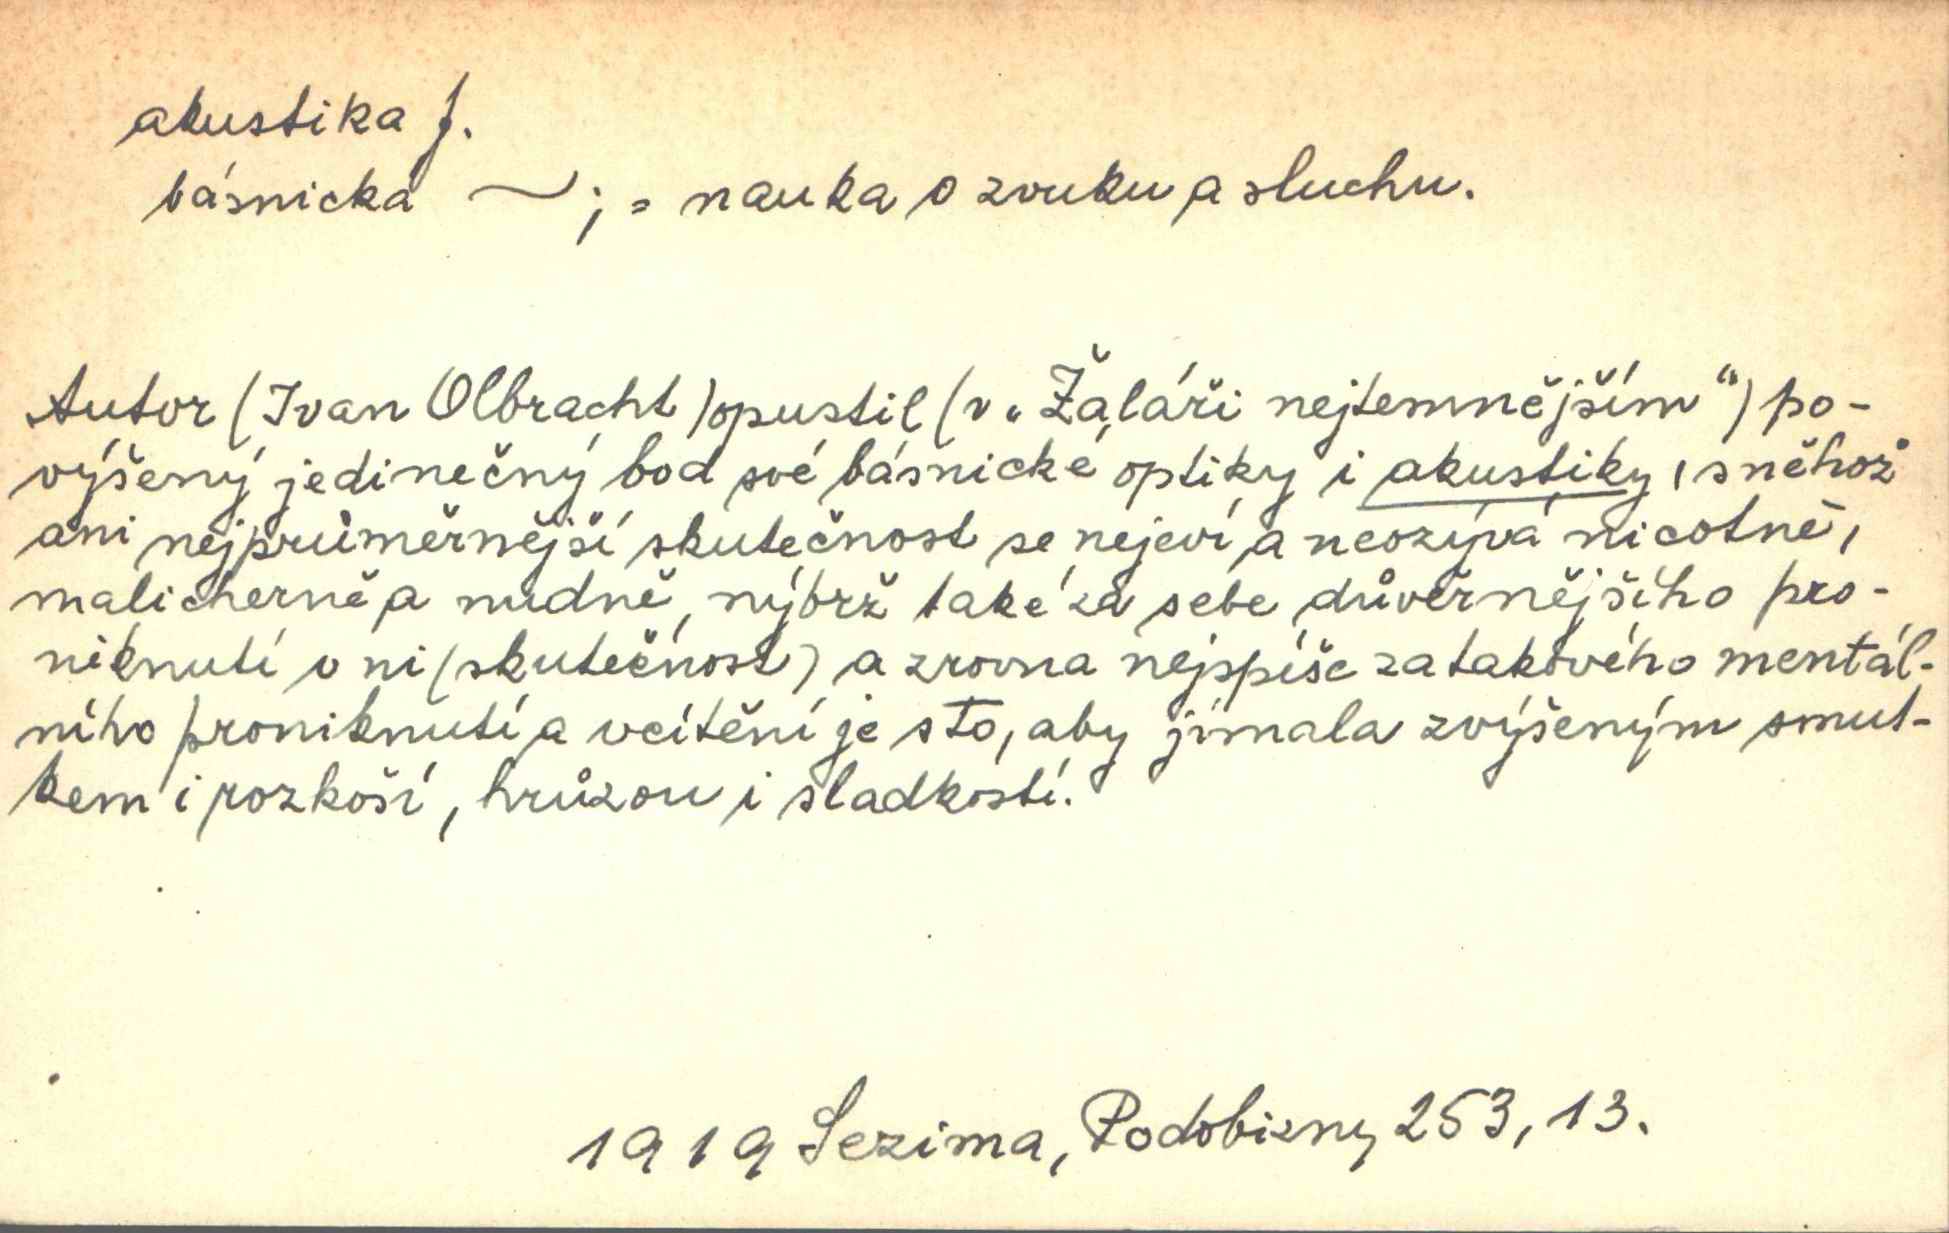 akustika f.
básnická ~; = nauka o zvuku a sluchu.
Autor (Ivan Olbracht) opustil (v „Žaláři nejtemnějším“) po-
výšený jedinečný bod své básnické optiky i akustiky, s něhož
ani nejprůměrnější skutečnost se nejeví a neozývá nicotně,
malicherně a nudně, nýbrž také za sebe důvěrnějšího pro-
niknutí v ni (skutečnost) a zrovna nejspíše za takového mentál-
ního proniknutí a vcítění je s to, aby jímala zvýšeným smut-
kem i rozkoší, hrůzou i sladkostí.
1919 Sezima, Podobizny 253, 13.